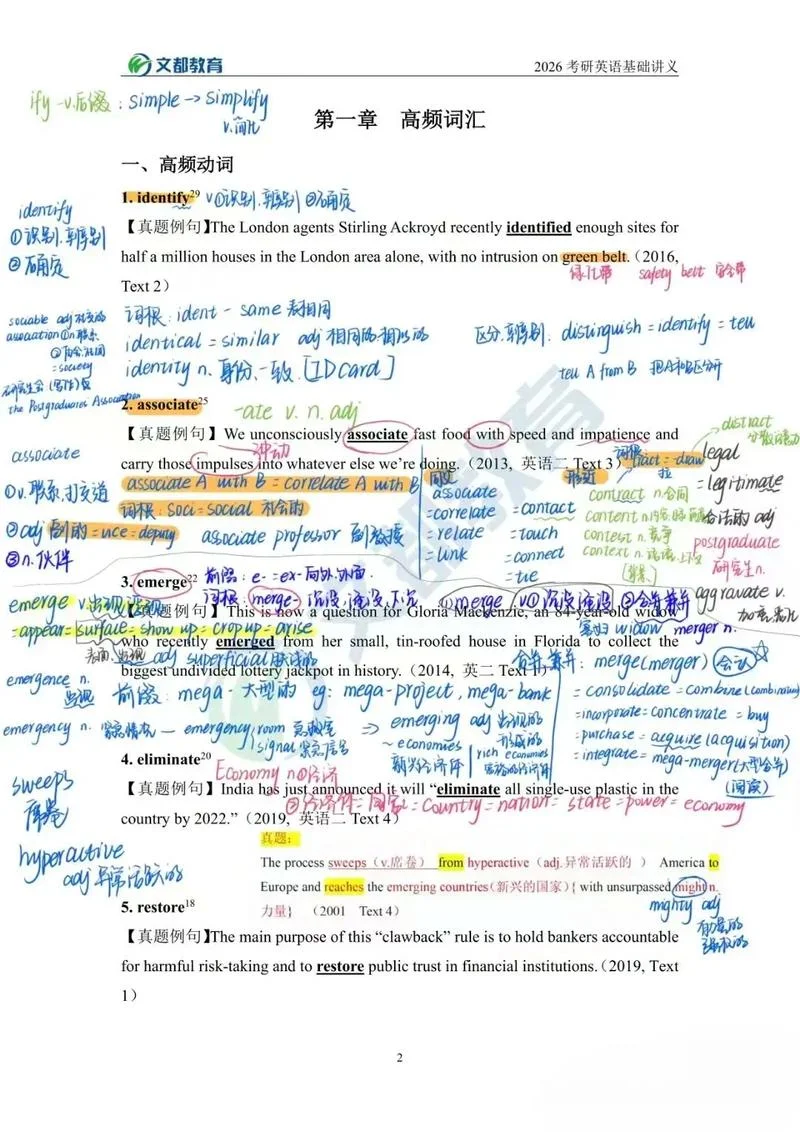 文都教育
2026 考研英语基础讲义
ify -v.后缀：simple→simplify
v.简化
第一章 高频词汇
一、高频动词
1. identify29 v①识别.辨别 ②确定
identify
①识别.辨别
②确定
【真题例句】The London agents Stirling Ackroyd recently identified enough sites for
half a million houses in the London area alone, with no intrusion on green belt.（2016,
绿化带 safety belt 安全带
Text 2）
词根：ident - same 表相同
identical = similar adj 相同的.相似的
identity n. 身份、一致.[ID card]
区分.辨别. distinguish = identify = tell
tell A from B 把A和B区分开
sociable adj 社交的
association ①n 联系
②协会.社团
=society
the Postgraduates Association
2. associate25
-ate v. n. adj
【真题例句】We unconsciously associate fast food with speed and impatience and
冲动
carry those impulses into whatever else we're doing.（2013, 英语二 Text 3）
associate A with B = correlate A with B
词根：soci = social 社会的
associate professor 副教授
associate
①v. 联系.打交道
②adj 副的 = vice = deputy
③n.伙伴
同义
associate
=correlate
= relate
= link
= contact
= touch
= connect
= tie
形近
词根 tract = draw
拉
distract
分散注意力
contract n.合同
content n.内容
contest n.竞争
context n.语境.上下文
legal
= legitimate
合法的 adj
postgraduate
研究生 n.
aggravate v.
加重.恶化
3. emerge22 前缀：e- =ex- 向外.外面.
词根：merge- 沉没.淹没
①merge v①沉没.淹没 ②合并.兼并
emerge v.出现.浮现
=appear=surface=show up=crop up=arise
【真题例句】This is now a question for Gloria Mackenzie, an 84-year-old widow
寡妇 widow merger n.
who recently emerged from her small, tin-roofed house in Florida to collect the
表面.出现 adj superficial 肤浅的
biggest undivided lottery jackpot in history.（2014, 英二 Text 1）
合并.兼并：merge(merger)
= consolidate = combine(combination)
=incorporate=concentrate = buy
=purchase = acquire (acquisition)
= integrate= mega-merger(大型合并)
(阅读)
emergence n.
出现
前缀：mega- 大型的 eg: mega-project, mega-bank
emergency n. 紧急情况 — emergency room 急救室
signal 紧急信号
⇒ emerging adj 出现的
形成的
~ economies
新兴经济体
rich economies
富裕的经济体
4. eliminate20
Economy n①经济
【真题例句】India has just announced it will “eliminate all single-use plastic in the
②经济体=国家=country=nation= state=power= economy
country by 2022.”（2019, 英语二 Text 4）
sweeps
席卷
hyperactive
adj 异常活跃的
真题：
The process sweeps（v.席卷） from hyperactive（adj.异常活跃的 ） America to
Europe and reaches the emerging countries(新兴的国家){ with unsurpassed might n.
力量} （2001 Text 4）
mighty adj
有力量的
强有力的
5. restore18
【真题例句】The main purpose of this “clawback” rule is to hold bankers accountable
for harmful risk-taking and to restore public trust in financial institutions.（2019, Text
1）
2